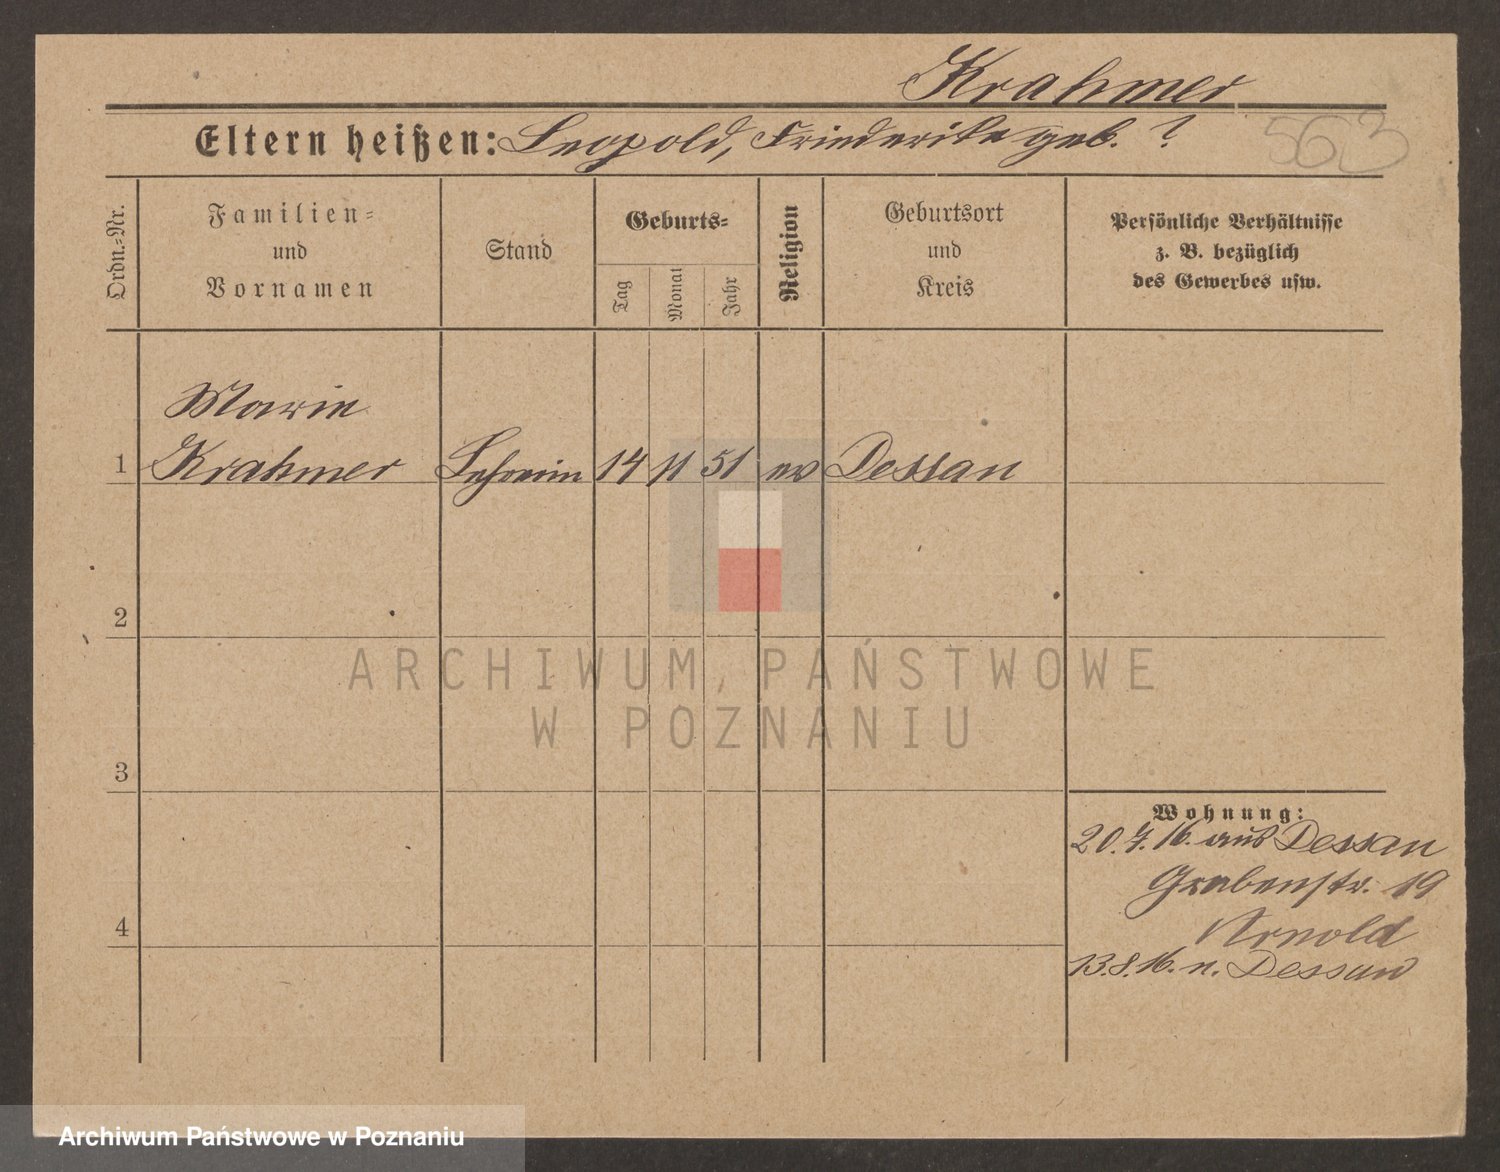 Krahmer
Eltern heißen: Leopold, Friederike geb. ?
563
Ordn.=Nr.
Familien=
und
Vornamen
Stand
Geburts=
Tag
Monat
Jahr
Religion
Geburtsort
und
Kreis
Persönliche Verhältnisse
z. B. bezüglich
des Gewerbes usw.
Marie
1 Krahmer Lehrerin 14 11 51 ev Dessau
2
ARCHIWUM PAŃSTWOWE
W POZNANIU
3
Wohnung:
20.7.16. aus Dessau
Grabenstr. 19
4
Arnold
13.8.16. n. Dessau
Archiwum Państwowe w Poznaniu